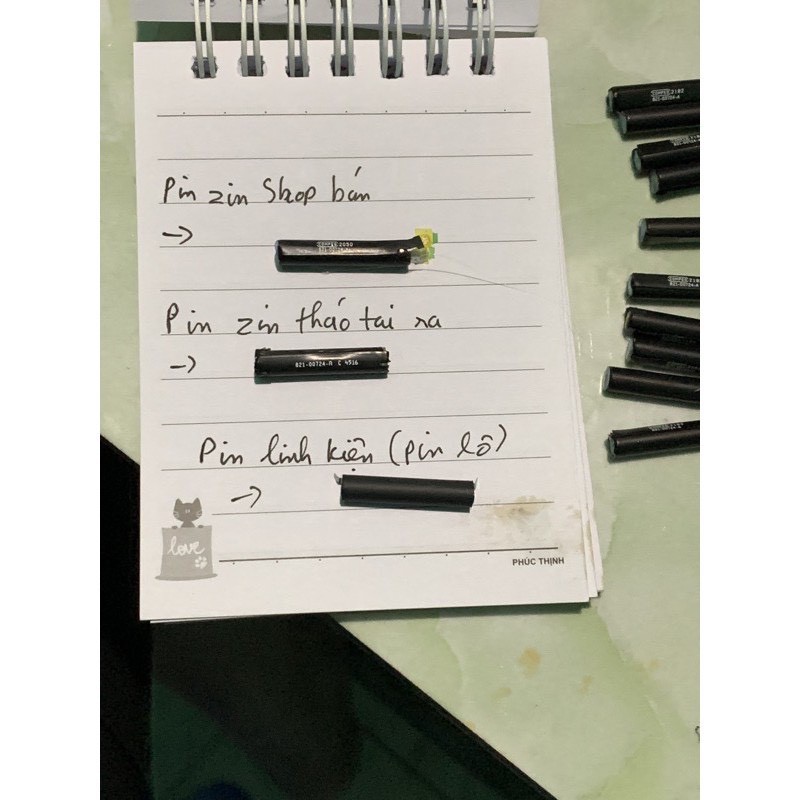 Pin zin Shop bán
→
COMPEC 2050
Pin zin tháo tai ra
→
821-00724-A C 4516
Pin linh kiện (pin lô)
→
love
PHÚC THỊNH